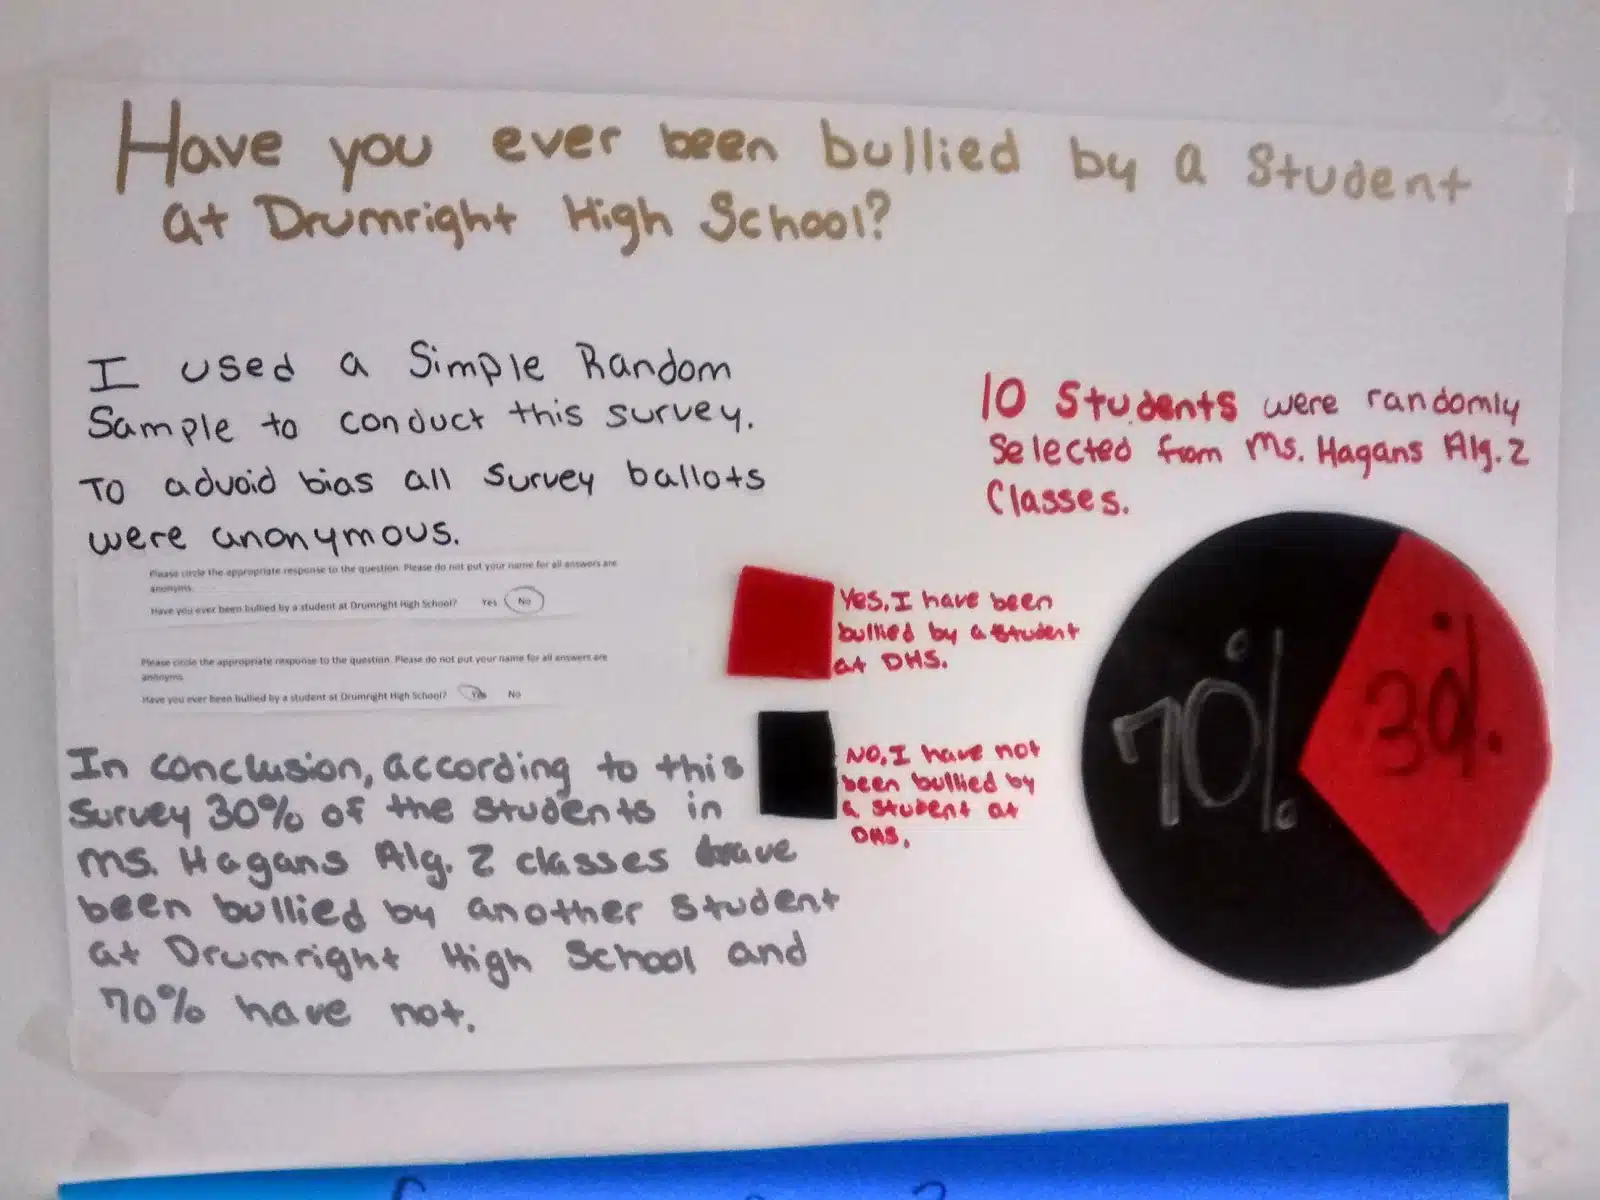 Have you ever been bullied by a student
at Drumright High School?
I used a Simple Random
Sample to conduct this survey.
To advoid bias all survey ballots
were anonymous.
Please circle the appropriate response to the question. Please do not put your name for all answers are
anonyms.
Have you ever been bullied by a student at Drumright High School? Yes No
Please circle the appropriate response to the question. Please do not put your name for all answers are
anonyms.
Have you ever been bullied by a student at Drumright High School? Yes No
In conclusion, according to this
survey 30% of the students in
Ms. Hagans Alg. 2 classes have
been bullied by another student
at Drumright High School and
70% have not.
10 Students were randomly
selected from Ms. Hagans Alg. 2
Classes.
Yes, I have been
bullied by a student
at DHS.
No, I have not
been bullied by
a student at
DHS.
70%
30%